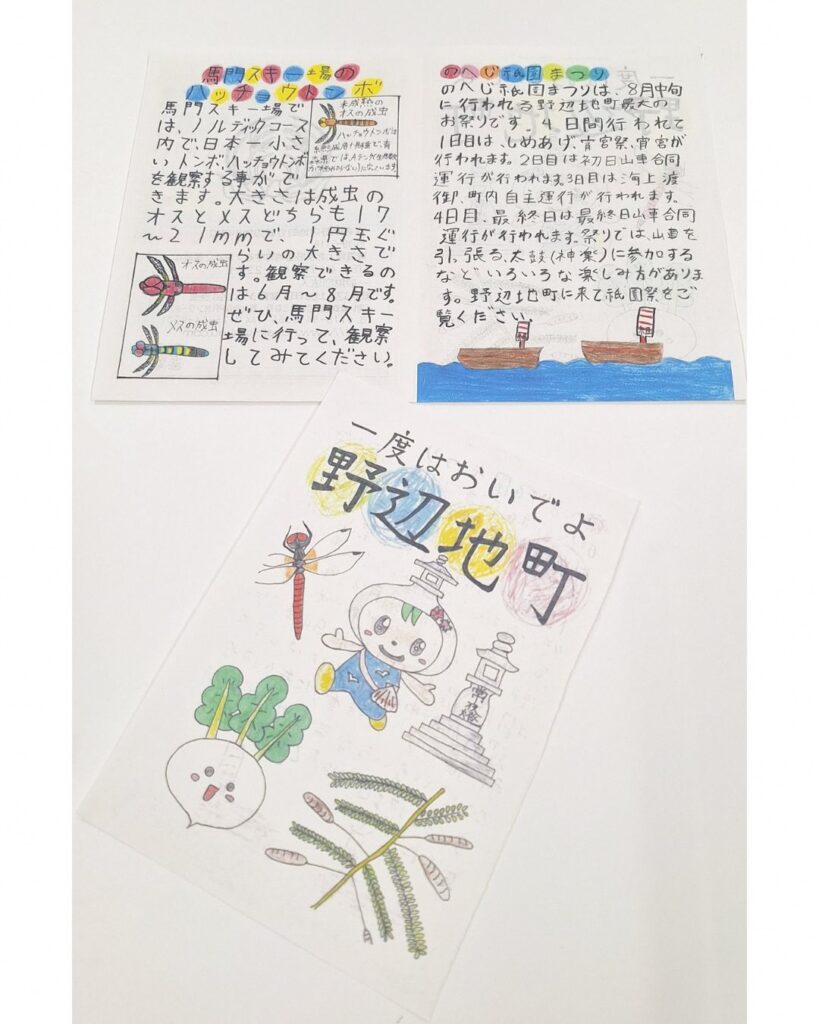 馬門スキー場の
ハッチョウトンボ
馬門スキー場で
は、ノルディックコース
内で、日本一小さ
いトンボ、ハッチョウトンボ
を観察する事がで
きます。大きさは成虫の
オスとメスどちらも17
～21mmで、1円玉ぐ
らいの大きさで
す。観察できるの
は6月～8月です。
ぜひ、馬門スキー
場に行って、観察
してみてください。
未成熟の
オスの成虫
ハッチョウトンボは
オスの成虫
メスの成虫
のへじ祇園まつり
のへじ祇園まつりは、8月中旬
に行われる野辺地町最大の
お祭りです。4日間行われて
1日目は、しめあげ、宵宮祭、宵宮が
行われます。2日目は初日山車合同
運行が行われます。3日目は海上渡
御、町内自主運行が行われます。
4日目、最終日は最終日山車合同
運行が行われます。祭りでは、山車を
引っ張る、太鼓(神楽)に参加する
などいろいろな楽しみ方がありま
す。野辺地町に来て祇園祭をご
覧ください。
一度はおいでよ
野辺地町
常夜燈